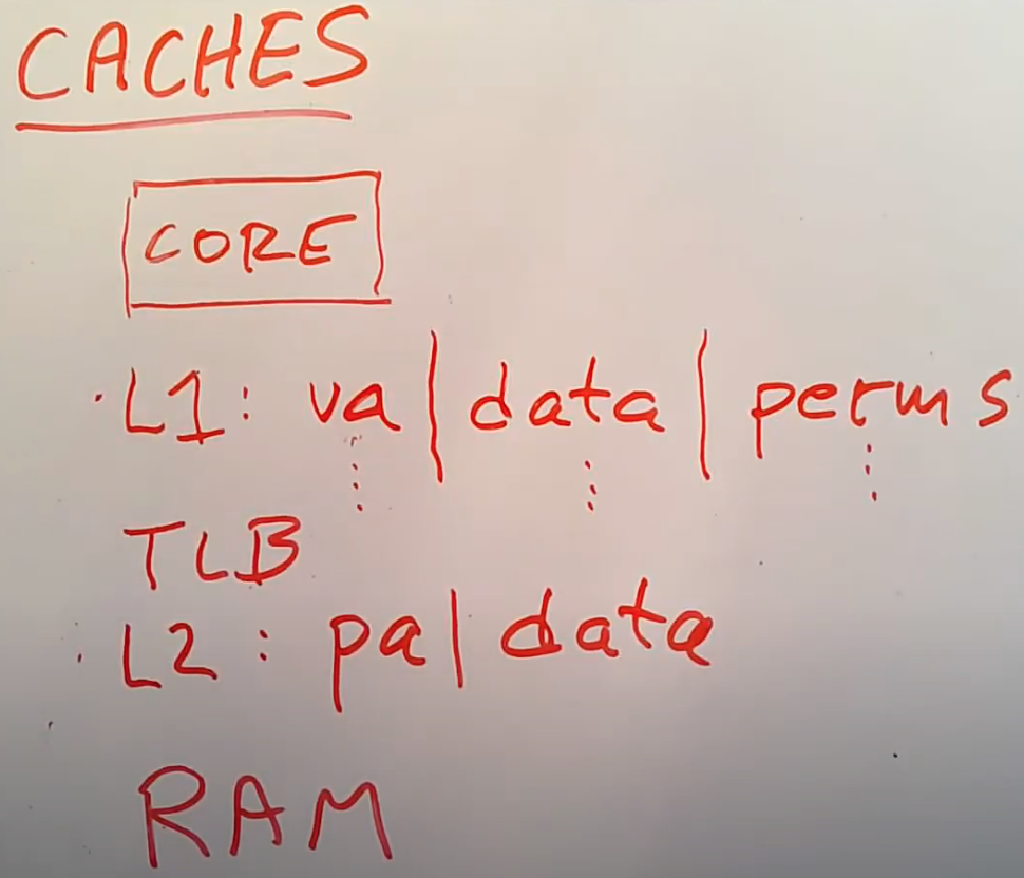 CACHES
CORE
L1: va | data | perms
TLB
L2: pa | data
RAM